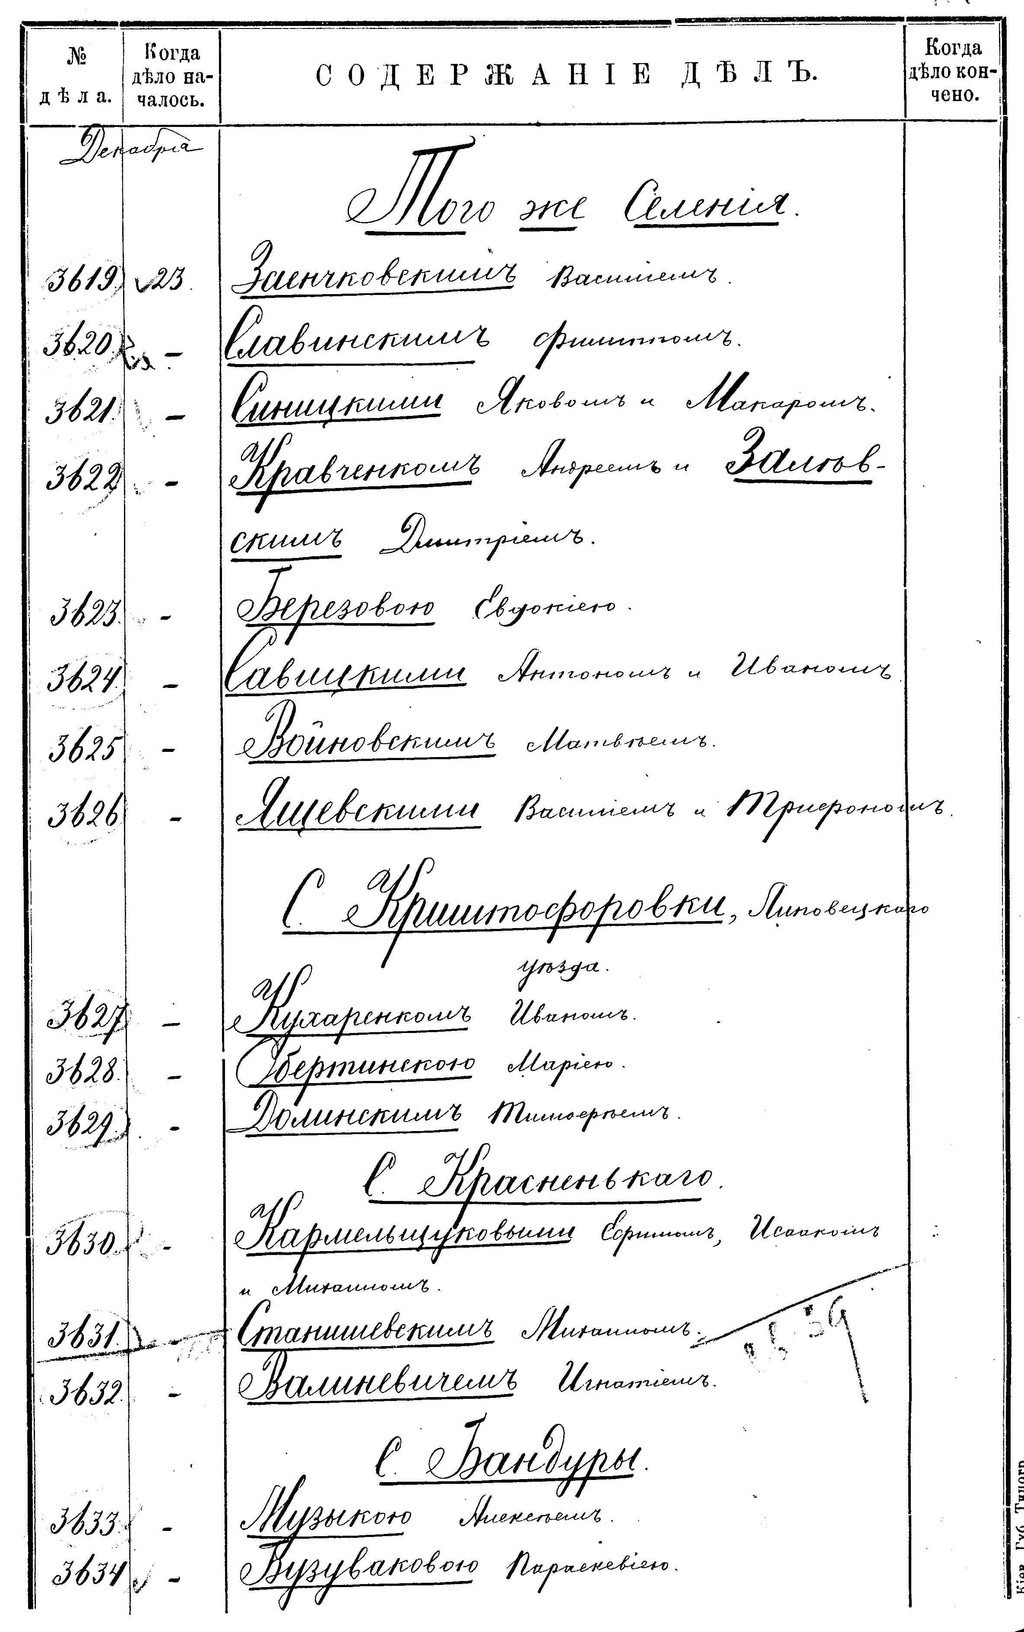 № дѣла.
Когда дѣло началось.
СОДЕРЖАНІЕ ДѢЛЪ.
Когда дѣло кончено.
Декабря
Того же Селенія.
3619. 23. Заенчковскимъ Василіемъ.
3620. - Славинскимъ Филиппомъ.
3621. - Синицкими Яковомъ и Макаромъ.
3622 - Кравченкомъ Андреемъ и Залѣв-
скимъ Дмитріемъ.
3623. - Березовою Евдокіею.
3624. - Савицкими Антономъ и Иваномъ
3625 - Войновскимъ Матвѣемъ.
3626 - Ящевскими Василіемъ и Трифономъ.
С. Криштофоровки, Липовецкаго
уѣзда.
3627 - Кухаренкомъ Иваномъ.
3628. - Обертинскою Маріею.
3629. - Долинскимъ Тимофѣемъ.
С. Красненькаго.
3630. - Кармельщуковыми Ефимомъ, Исаакомъ
и Михаиломъ.
3631. - Станишевскимъ Михаиломъ.
3632. - Валиневичемъ Игнатіемъ.
С. Бандуры.
3633 - Музыкою Алексѣемъ.
3634 - Вузуваковою Параскевіею.
Кіев. Губ. Типогр.